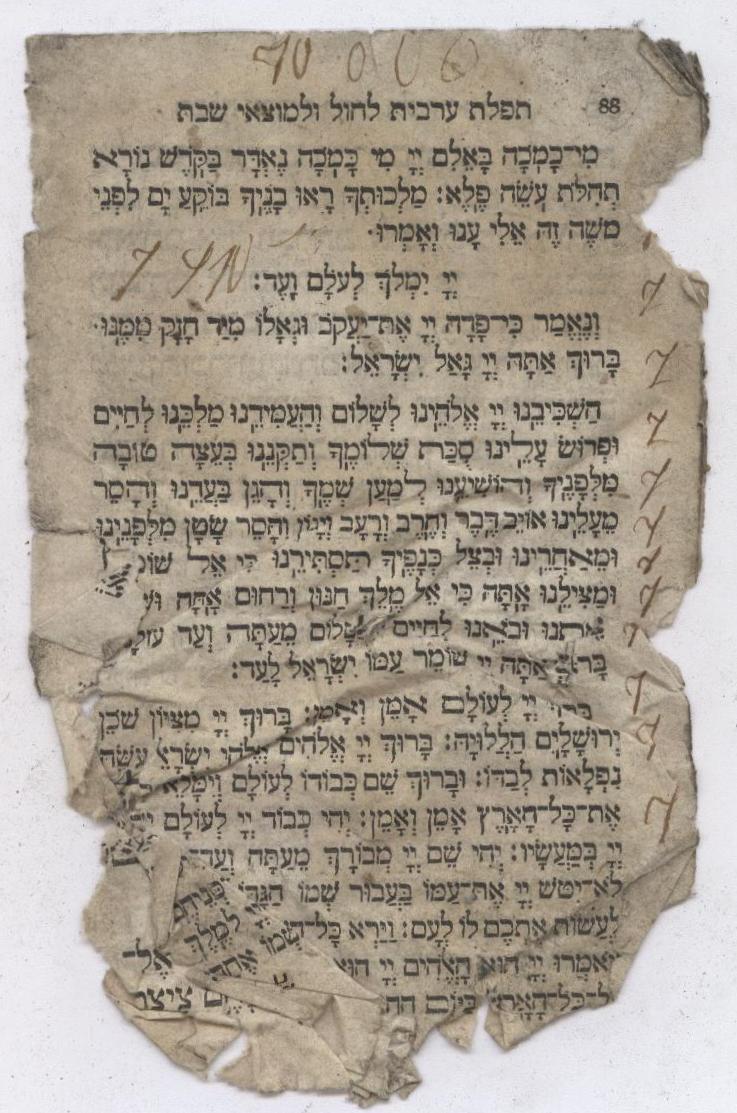 תפלת ערבית לחול ולמוצאי שבת 88
מִי־כָמֹכָה בָּאֵלִם יְיָ מִי כָּמֹכָה נֶאְדָּר בַּקֹּדֶשׁ נוֹרָא
תְהִלֹּת עֹשֵׂה פֶלֶא: מַלְכוּתְךָ רָאוּ בָנֶיךָ בּוֹקֵעַ יָם לִפְנֵי
משֶׁה זֶה אֵלִי עָנוּ וְאָמְרוּ.
יְיָ יִמְלֹךְ לְעֹלָם וָעֶד:
וְנֶאֱמַר כִּי־פָדָה יְיָ אֶת־יַעֲקֹב וּגְאָלוֹ מִיַּד חָזָק מִמֶּנּוּ.
בָּרוּךְ אַתָּה יְיָ גָּאַל יִשְׂרָאֵל:
הַשְׁכִּיבֵנוּ יְיָ אֱלֹהֵינוּ לְשָׁלוֹם וְהַעֲמִידֵנוּ מַלְכֵּנוּ לְחַיִּים
וּפְרוֹשׂ עָלֵינוּ סֻכַּת שְׁלוֹמֶךָ וְתַקְּנֵנוּ בְּעֵצָה טוֹבָה
מִלְּפָנֶיךָ וְהוֹשִׁיעֵנוּ לְמַעַן שְׁמֶךָ וְהָגֵן בַּעֲדֵנוּ וְהָסֵר
מֵעָלֵינוּ אוֹיֵב דֶּבֶר וְחֶרֶב וְרָעָב וְיָגוֹן וְהָסֵר שָׂטָן מִלְּפָנֵינוּ
וּמֵאַחֲרֵינוּ וּבְצֵל כְּנָפֶיךָ תַּסְתִּירֵנוּ כִּי אֵל
וּמַצִּילֵנוּ אָתָּה כִּי אֵל מֶלֶךְ חַנּוּן וְרַחוּם אָתָּה
וּבוֹאֵנוּ לְחַיִּים שָׁלוֹם מֵעַתָּה וְעַד
אַתָּה יְיָ שׁוֹמֵר עַמּוֹ יִשְׂרָאֵל לָעַד:
יְיָ לְעוֹלָם אָמֵן וְאָמֵן: בָּרוּךְ יְיָ מִצִּיּוֹן שֹׁכֵן
יְרוּשָׁלָיִם הַלְלוּיָהּ: בָּרוּךְ יְיָ אֱלֹהִים אֱלֹהֵי יִשְׂרָאֵל עֹשֵׂה
נִפְלָאוֹת לְבַדּוֹ: וּבָרוּךְ שֵׁם כְּבוֹדוֹ לְעוֹלָם וְיִמָּלֵא
אֶת־כָּל־הָאָרֶץ אָמֵן וְאָמֵן: יְהִי כְבוֹד יְיָ לְעוֹלָם
יְיָ בְּמַעֲשָׂיו: יְהִי שֵׁם יְיָ מְבוֹרָךְ מֵעַתָּה וְעַד־
לֹא־יִטֹּשׁ יְיָ אֶת־עַמּוֹ בַּעֲבוּר שְׁמוֹ
לַעֲשׂוֹת אֶתְכֶם לוֹ לְעָם: וַיַּרְא כָּל־
יֹּאמְרוּ יְיָ הוּא הָאֱלֹהִים יְיָ